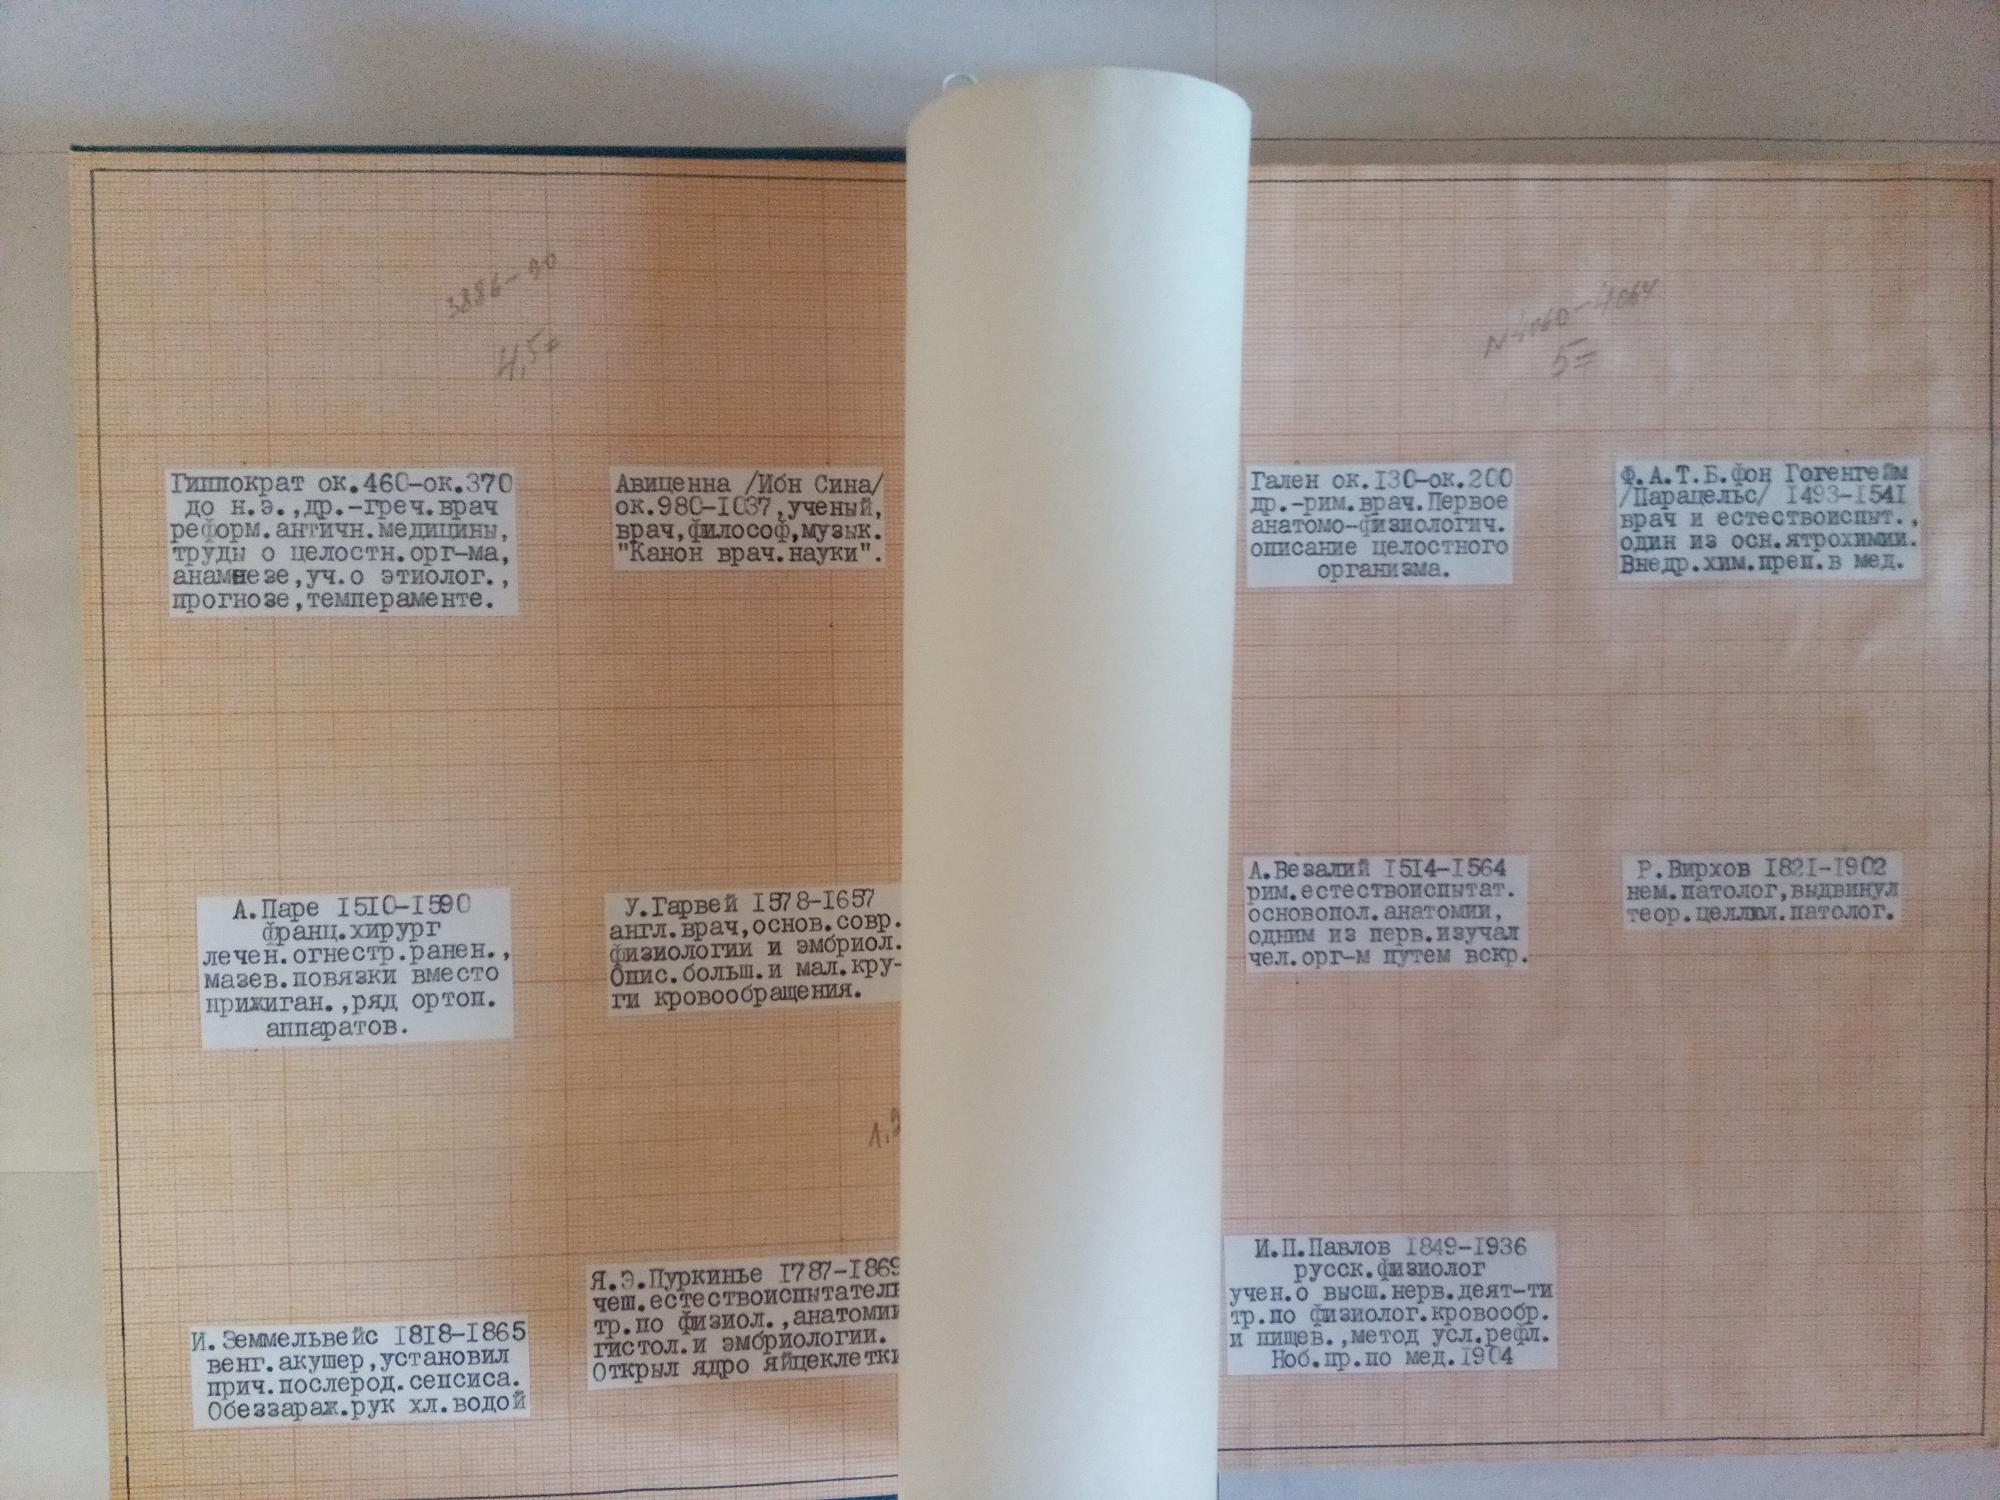 3886-90
4,5=
Гиппократ ок.460-ок.370
до н.э.,др.-греч.врач
реформ.античн.медицины,
труды о целостн.орг-ма,
анамнезе,уч.о этиолог.,
прогнозе,темпераменте.
Авиценна /Ибн Сина/
ок.980-I037,ученый,
врач,философ,музык.
"Канон врач.науки".
А.Паре I5I0-I590
франц.хирург
лечен.огнестр.ранен.,
мазев.повязки вместо
прижиган.,ряд ортоп.
аппаратов.
У.Гарвей I578-I657
англ.врач,основ.совр.
физиологии и эмбриол.
Опис.больш.и мал.кру-
ги кровообращения.
И.Земмельвейс I8I8-I865
венг.акушер,установил
прич.послерод.сепсиса.
Обеззараж.рук хл.водой
Я.Э.Пуркинье I787-I869
чеш.естествоиспытатель
тр.по физиол.,анатомии
гистол.и эмбриологии.
Открыл ядро яйцеклетки
N4060-4064
5=
Гален ок.I30-ок.200
др.-рим.врач.Первое
анатомо-физиологич.
описание целостного
организма.
Ф.А.Т.Б.фон Гогенгейм
/Парацельс/ I493-I54I
врач и естествоиспыт.,
один из осн.ятрохимии.
Внедр.хим.преп.в мед.
А.Везалий I5I4-I564
рим.естествоиспытат.
основопол.анатомии,
одним из перв.изучал
чел.орг-м путем вскр.
Р.Вирхов I82I-I902
нем.патолог,выдвинул
теор.целлюл.патолог.
И.П.Павлов I849-I936
русск.физиолог
учен.о высш.нерв.деят-ти
тр.по физиолог.кровообр.
и пищев.,метод усл.рефл.
Ноб.пр.по мед.I904